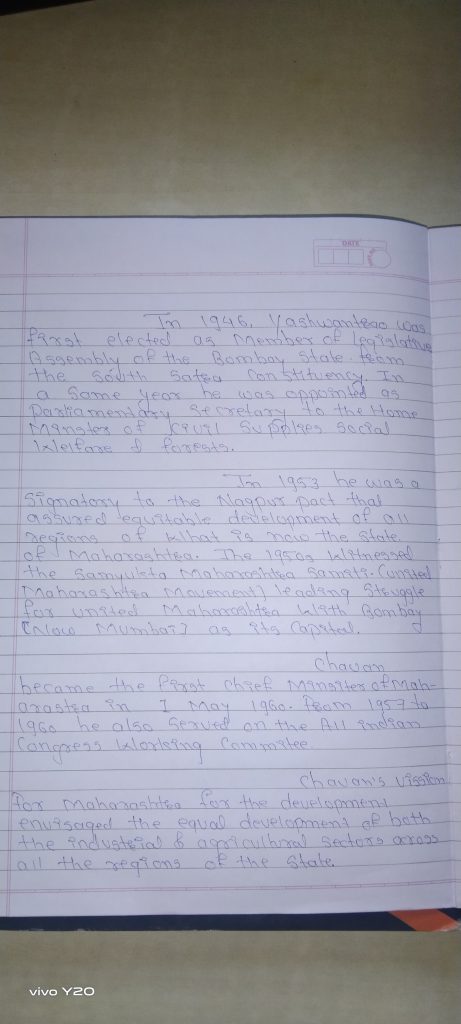 DATE
In 1946, Yashwantrao was
first elected as Member of legislative
Assembly of the Bombay State from
the South Satra Constituency In
a Same year he was appointed as
Parliamentary Secretary to the Home
Minster of Civil Supplies Social
Welfare & forests.
In 1953 he was a
Signatory to the Nagpur pact that
assured equitable development of all
regions of What is now the State
of Maharashtra. The 1950s Witnessed
the Samyukta Maharashtra Samiti. (united
Maharashtra Movement) leading Struggle
for united Maharashtra With Bombay
[Now Mumbai] as its Capital.
Chavan
became the first Chief Minsiter of Mah-
arastra in 1 May 1960. from 1957 to
1960 he also Served on the All indian
Congress Working Committee.
Chavan's Vission
for Maharashtra for the development
envisaged the equal development of both
the industrial & agricultural sectors across
all the regions of the State.
vivo Y20